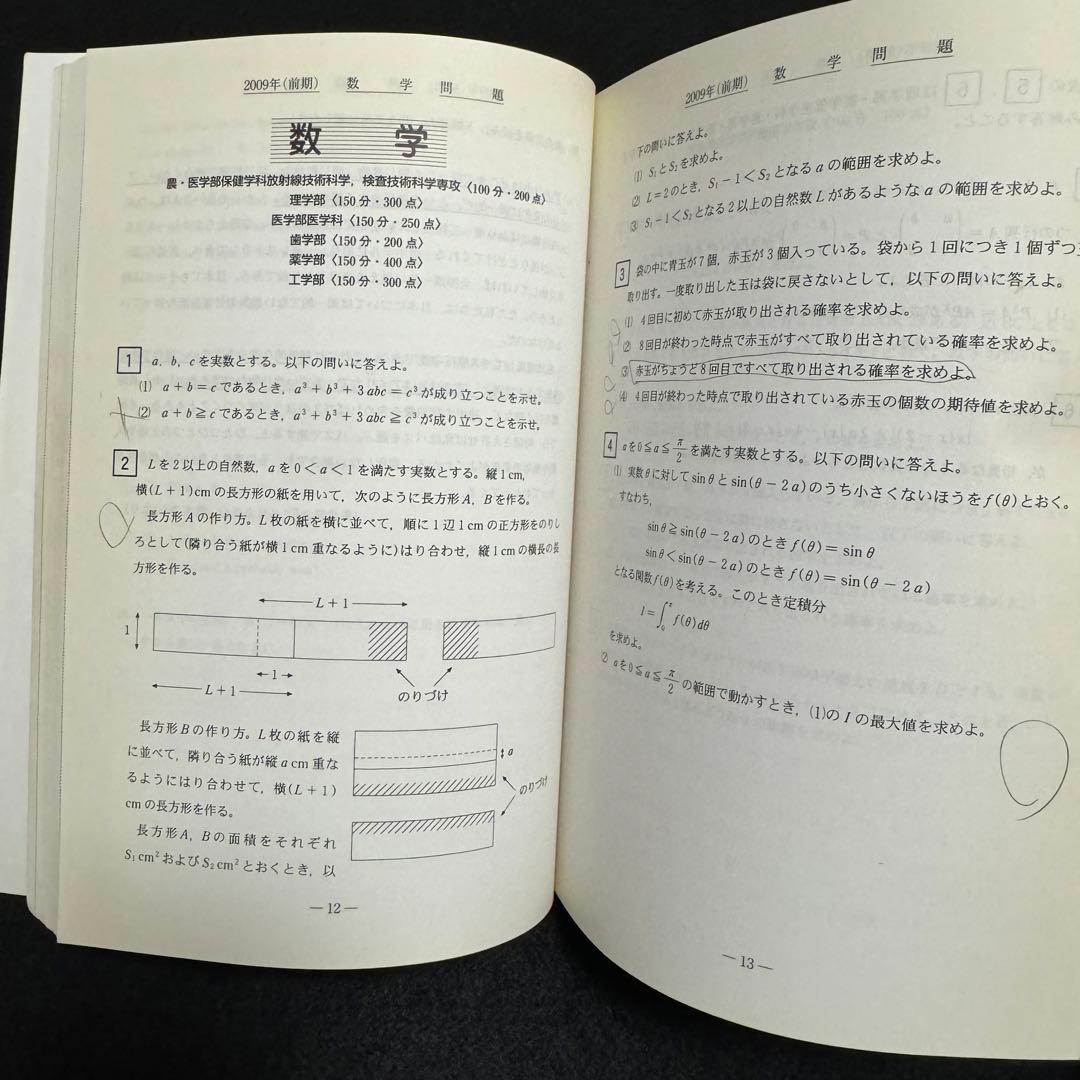 2009年(前期) 数 学 問 題
数 学
農・医学部保健学科放射線技術科学，検査技術科学専攻〈100分・200点〉
理学部〈150分・300点〉
医学部医学科〈150分・250点〉
歯学部〈150分・200点〉
薬学部〈150分・400点〉
工学部〈150分・300点〉
1 a, b, cを実数とする。以下の問いに答えよ。
(1) a+b=cであるとき，a³+b³+3abc=c³が成り立つことを示せ。
(2) a+b≧cであるとき，a³+b³+3abc≧c³が成り立つことを示せ。
2 Lを2以上の自然数，aを0<a<1を満たす実数とする。縦1cm，
横(L+1)cmの長方形の紙を用いて，次のように長方形A，Bを作る。
長方形Aの作り方。L枚の紙を横に並べて，順に1辺1cmの正方形をのりし
ろとして(隣り合う紙が横1cm重なるように)はり合わせ，縦1cmの横長の長
方形を作る。
L+1
1
1
L+1
のりづけ
長方形Bの作り方。L枚の紙を縦
に並べて，隣り合う紙が縦a cm重な
るようにはり合わせて，横(L+1)
cmの長方形を作る。
長方形A，Bの面積をそれぞれ
S₁cm²およびS₂cm²とおくとき，以
a
のりづけ
—12—
2009年(前期) 数 学 問 題
下の問いに答えよ。
(1) S₁とS₂を求めよ。
(2) L=2のとき，S₁−1<S₂となるaの範囲を求めよ。
(3) S₁−1<S₂となる2以上の自然数Lがあるようなaの範囲を求めよ。
3 袋の中に青玉が7個，赤玉が3個入っている。袋から1回につき1個ずつ玉
取り出す。一度取り出した玉は袋に戻さないとして，以下の問いに答えよ。
(1) 4回目に初めて赤玉が取り出される確率を求めよ。
(2) 8回目が終わった時点で赤玉がすべて取り出されている確率を求めよ。
(3) 赤玉がちょうど8回目ですべて取り出される確率を求めよ。
(4) 4回目が終わった時点で取り出されている赤玉の個数の期待値を求めよ。
4 aを0≦a≦π/2を満たす実数とする。以下の問いに答えよ。
(1) 実数θに対してsinθとsin(θ−2a)のうち小さくないほうをf(θ)とおく。
すなわち，
sinθ≧sin(θ−2a)のときf(θ)=sinθ
sinθ<sin(θ−2a)のときf(θ)=sin(θ−2a)
となる関数f(θ)を考える。このとき定積分
I=∫₀^π f(θ)dθ
を求めよ。
(2) aを0≦a≦π/2の範囲で動かすとき，(1)のIの最大値を求めよ。
—13—